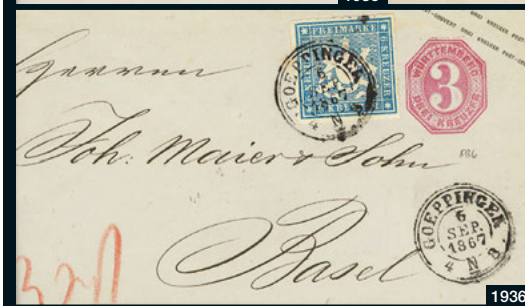 DREI KREUZER POST-COUVERT DREI KREUZER POST-
FREIMARKE
6 KREUZER
GOEPPINGEN
6
SEP.
1867
4 N 8
WÜRTTEMBERG
3
DREI KREUZER
Herren
Joh: Maier & Sohn
Basel
GOEPPINGEN
6
SEP.
1867
4 N 8
1936